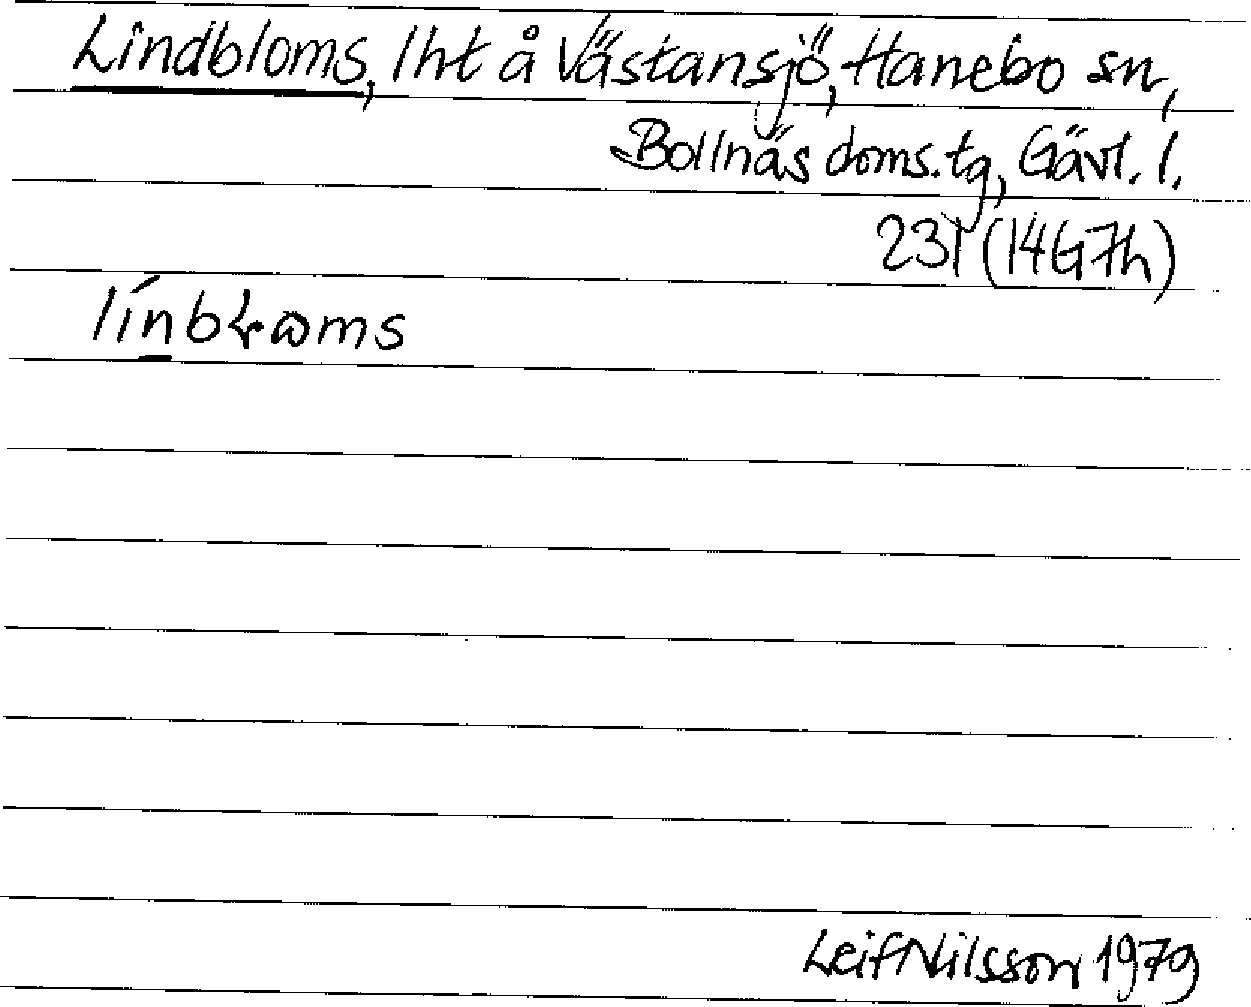 Lindbloms, lht å Västansjö, Hanebo sn,
Bollnäs doms.tg, Gävl. l.
231 (14G7h)
Leif Nilsson 1979